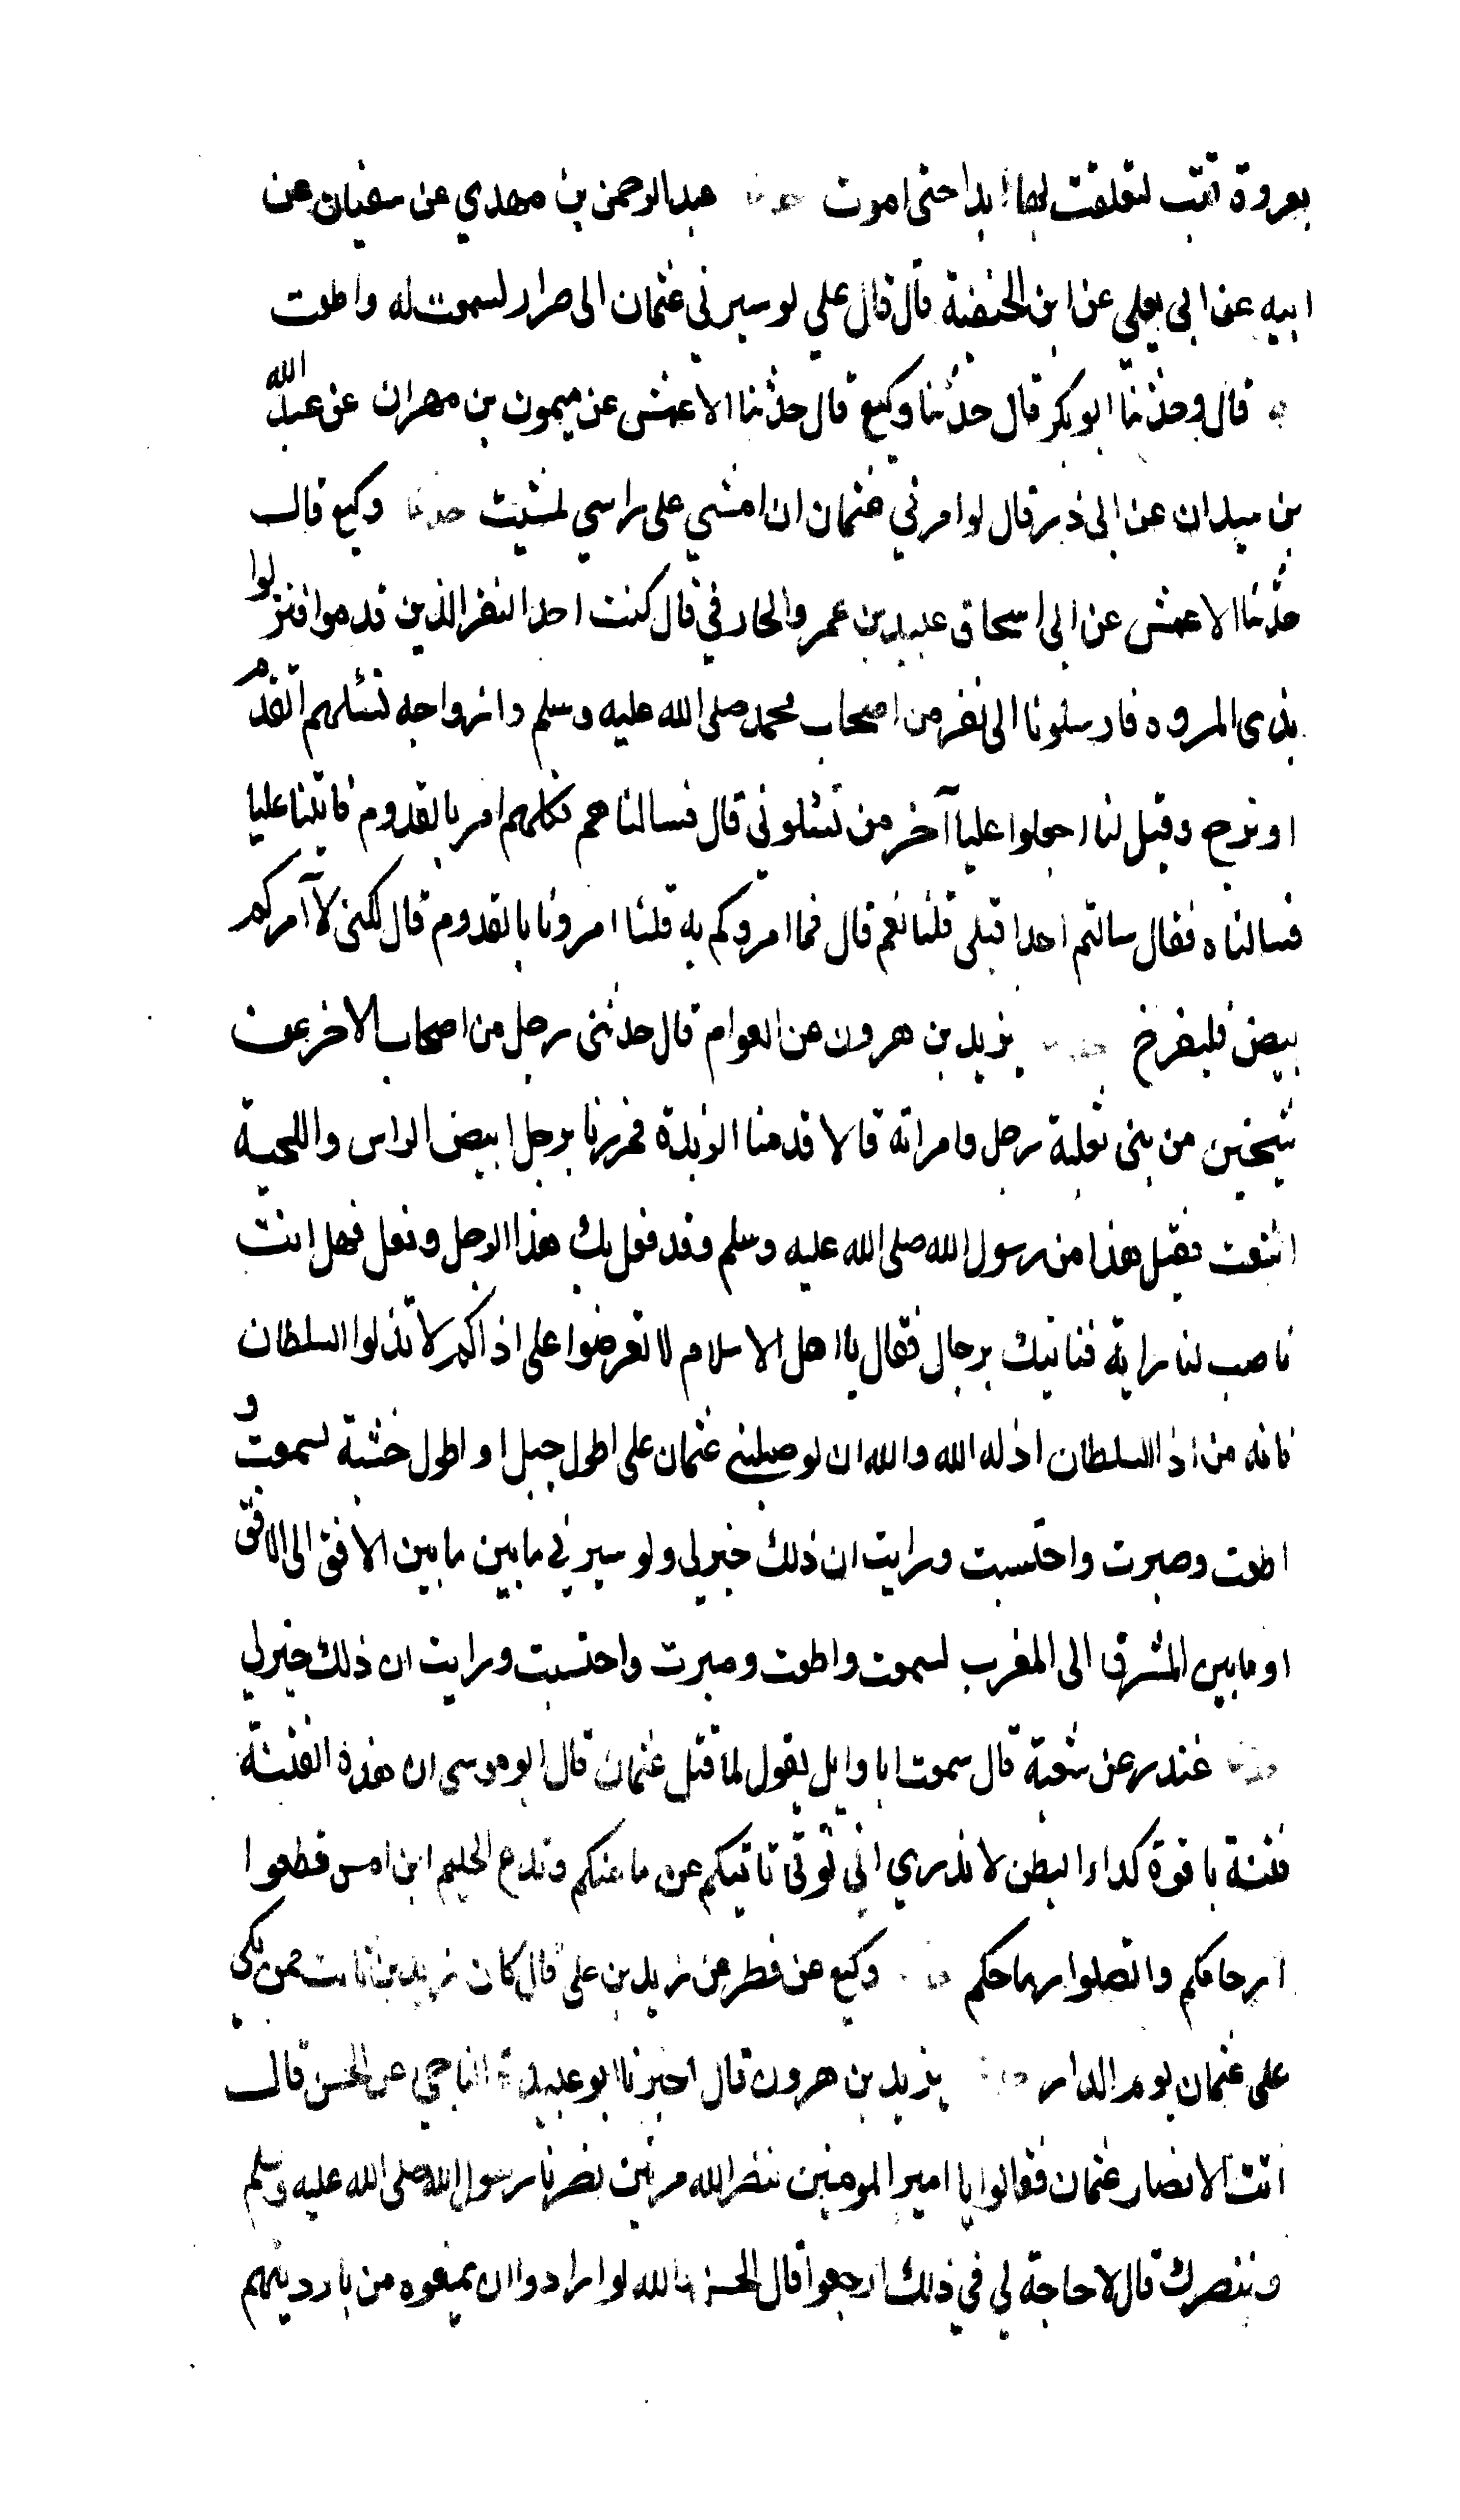 بعروة قتب لتعلقت بها ابدا حتى اموت حدثنا عبدالرحمن بن مهدي عن سفيان عن
ابيه عن ابي يعلي عن ابن الحنفية قال قال علي لو سيرني عثمان الى صرار لسمعت له واطعت
قال وحدثنا ابو بكر قال حدثنا وكيع قال حدثنا الاعمش عن ميمون بن مهران عن عبد الله
بن سيدان عن ابي ذر قال لو امرني عثمان ان امشي على راسي لمشيت حدثنا وكيع قال
حدثنا الاعمش عن ابي اسحاق عبيد بن عمرو الخارفي قال كنت احد النفر الذين قدموا فنزلوا
بذى المروه فارسلونا الى نفر من اصحاب محمد صلى الله عليه وسلم وازواجه نسئلهم انقدم
او نرجع وقيل لنا اجعلوا عليا آخر من تسئلوني قال فسالناهم فكلهم امر بالقدوم فاتينا عليا
فسالناه فقال سالتم احدا قبلي قلنا نعم قال فما امروكم به قلنا امرونا بالقدوم قال لكني لا آمركم
بيض فليفرخ حدثنا يزيد بن هرون عن العوام قال حدثني رجل من اصحاب الاخر عن
شيخين من بني ثعلبة رجل وامراته قالا قدمنا الربذة فمررنا برجل ابيض الراس واللحية
اشعث فقيل هذا من رسول الله صلى الله عليه وسلم وقد فعل بك هذا الرجل وفعل فهل انت
ناصب لنا راية فناتيك برجال فقال يا اهل الاسلام لا تعرضوا على اذاكم لا تذلوا السلطان
فانه من اذل السلطان اذله الله والله ان لو صلبني عثمان على اطول جبل او اطول خشبة لسمعت و
اطعت وصبرت واحتسبت ورايت ان ذلك خير لي ولو سيرني ما بين ما بين الافق الى الافق
او ما بين المشرق الى المغرب لسمعت واطعت وصبرت واحتسبت ورايت ان ذلك خير لي
حدثنا غندر عن شعبة قال سمعت ابا وايل يقول لما قتل عثمان قال ابو موسى ان هذه الفتنة
فتنة باقرة كداء البطن لا ندري انى نوتى تاتيكم من مامنكم وتدع الحليم ابن امس قطعوا
ارحامكم وانصلوا رماحكم حدثنا وكيع عن فطر عن زيد بن علي قال كان زيد بن ثابت ممن بكى
على عثمان يوم الدار حدثنا يزيد بن هرون قال اخبرنا ابو عبيدة الناجي عن الحسن قال
اتت الانصار عثمان فقالوا يا امير المومنين ننصر الله مرتين نصرنا رسول الله صلى الله عليه وسلم
وننصرك قال لا حاجة لي في ذلك ارجعوا قال الحسن والله لو ارادوا ان يمنعوه من باردیتهم